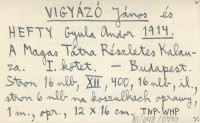 VIGYÁZÓ János és
HEFTY Gyula Andor 1914.
A Magas Tátra Részletes Kalau-
za. I. kötet. – Budapest.
Stron 16 nlb, XII, 400, 16 nlb, il.,
stron 6 nlb na koszulkach oprawy,
1 m., opr., 12 x 16 cm. TNP-WHP